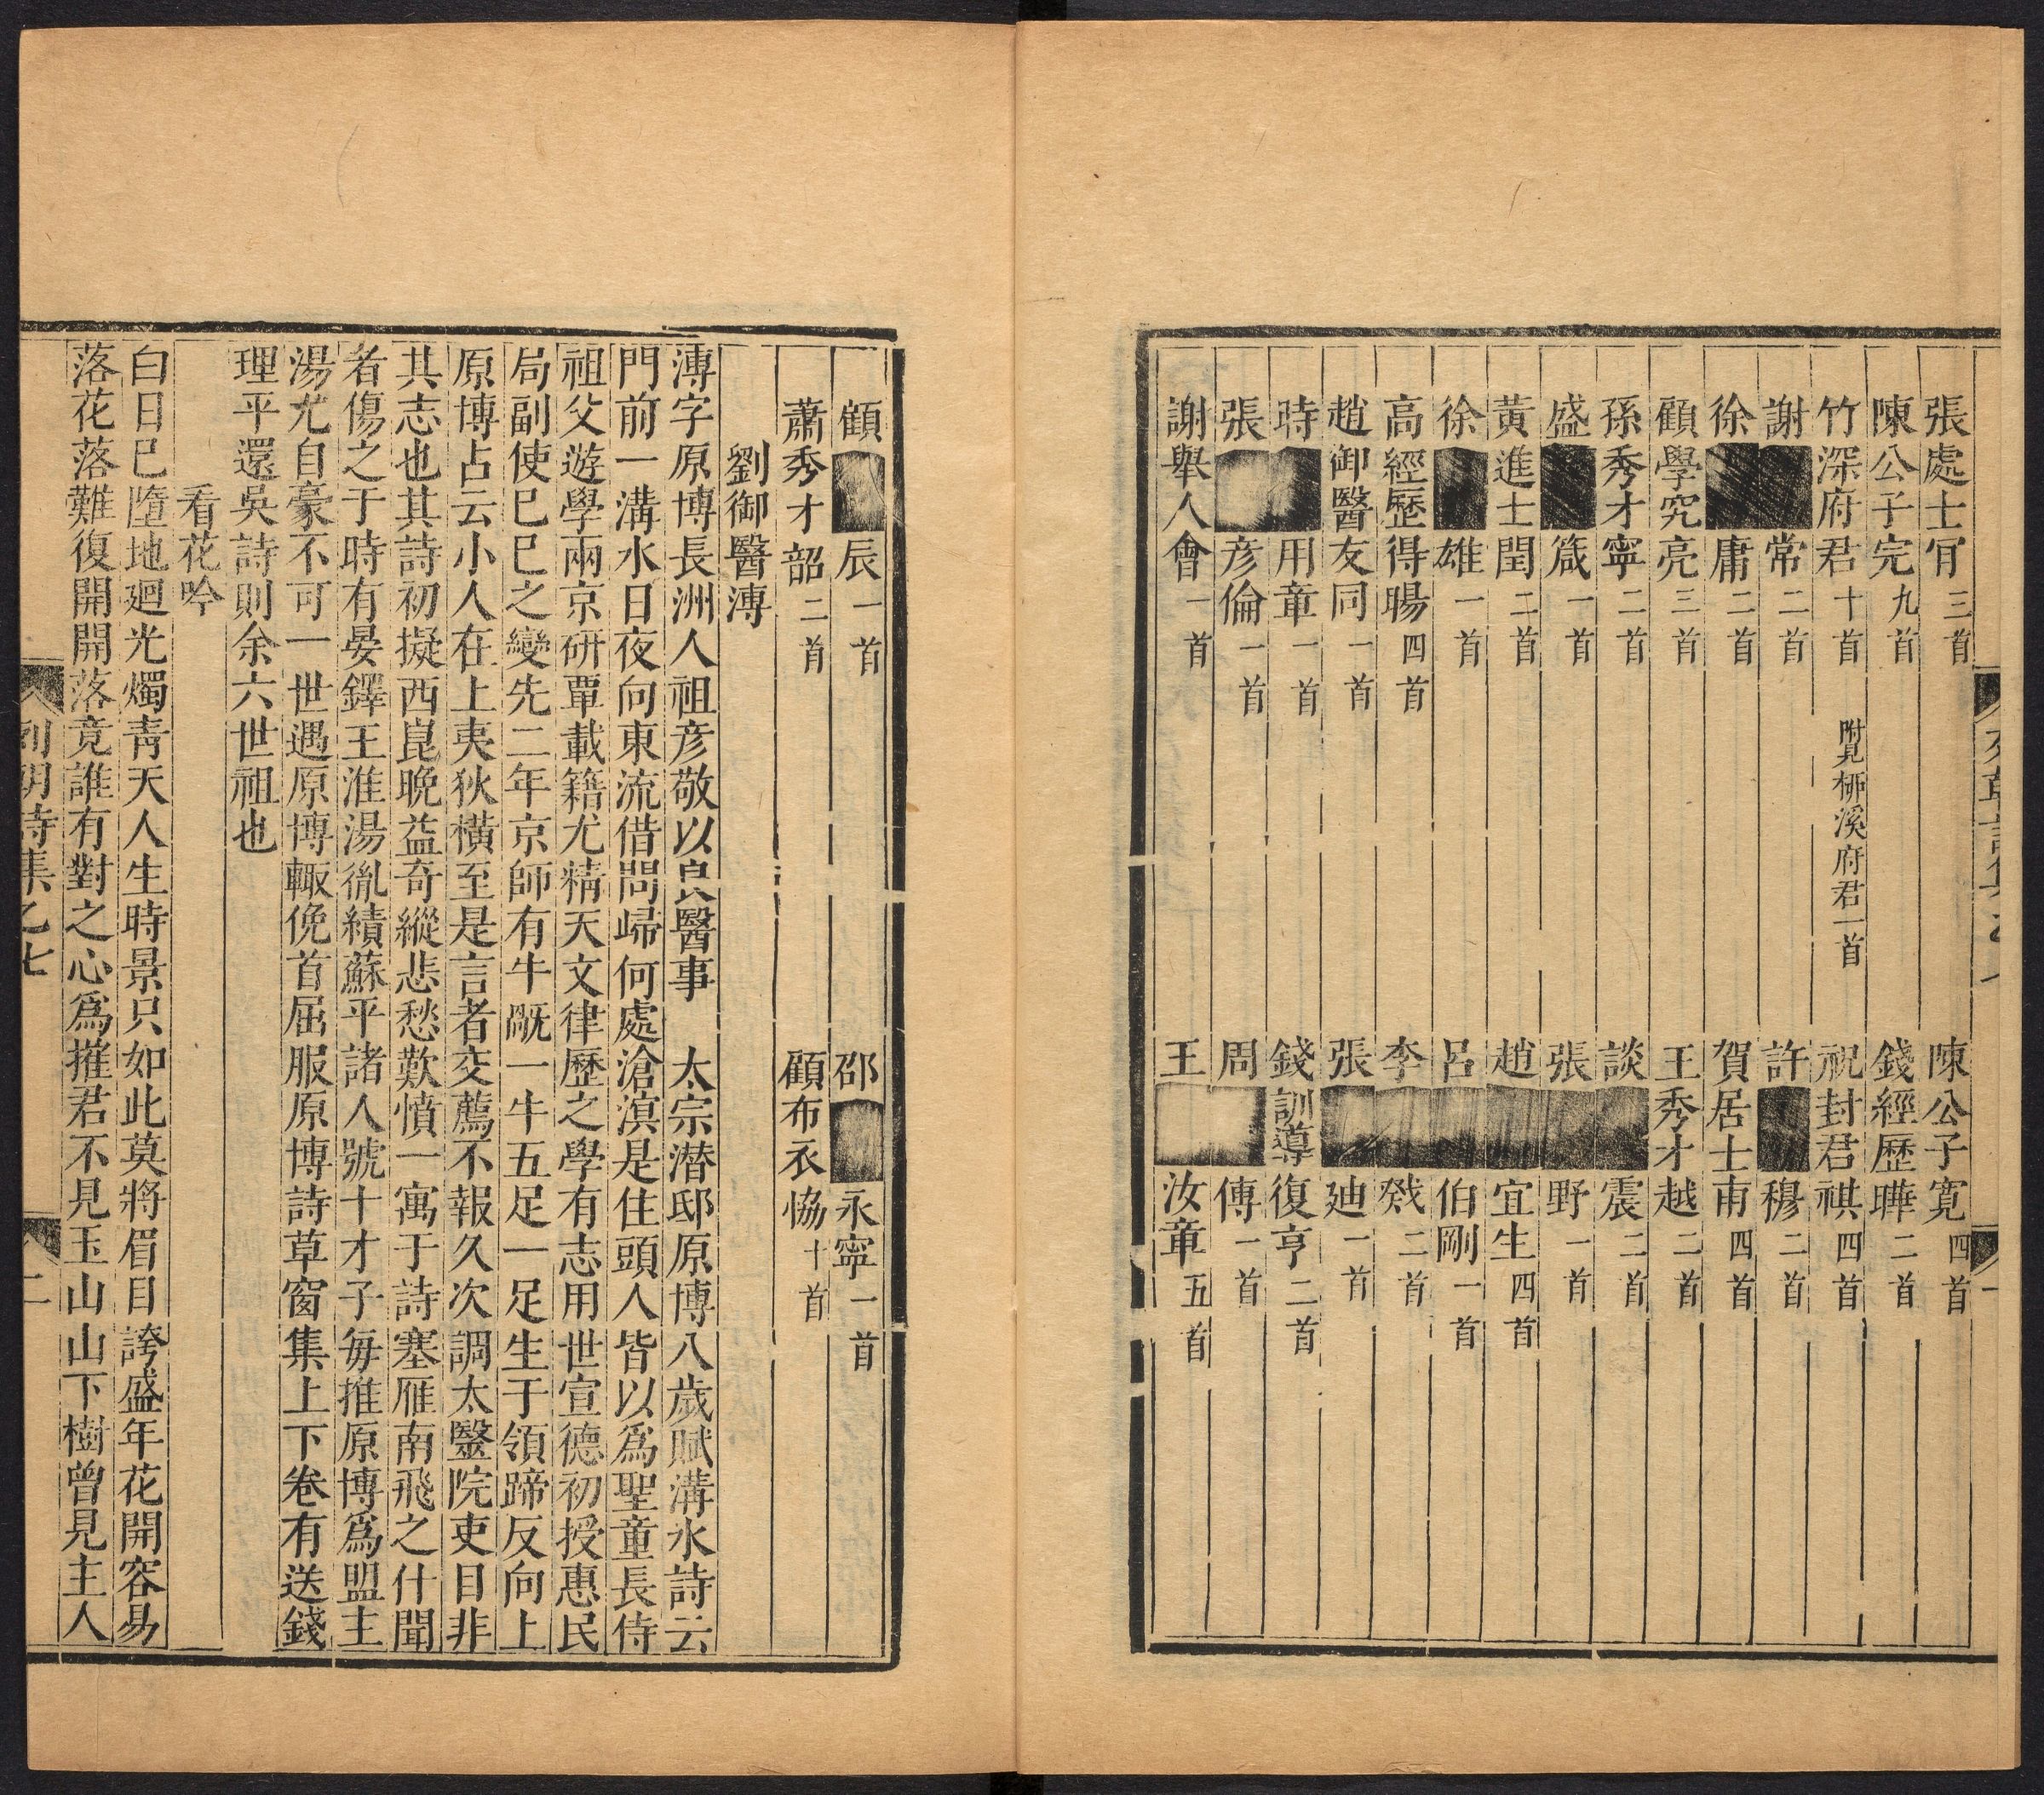 張處士𡩋三首　陳公子寬四首
陳公子完九首　錢經歷曄二首
竹深府君十首　附見栁溪府君一首　祝封君祺四首
謝■常二首　許■穆二首
徐■庸二首　賀居士甫四首
顧學究亮三首　王秀才越二首
孫秀才寧二首　談■震二首
盛■箴一首　張■野一首
黃進士閏二首　趙■宜生四首
徐■雄一首　呂■伯剛一首
高經歷得暘四首　李■戣二首
趙御醫友同一首　張■廸一首
時■用章一首　錢訓導復亨二首
張■彥倫一首　周■傳一首
謝舉人會一首　王■汝章五首
顧■辰一首　邵■永寧一首
蕭秀才韶二首　顧布衣恊十首
劉御醫溥
溥字原博長洲人祖彥敬以良醫事　太宗潛邸原博八歲賦溝水詩云
門前一溝水日夜向東流借問歸何處滄溟是住頭人皆以爲聖童長侍
祖父遊學兩京研覃載籍尤精天文律歷之學有志用世宣德初授惠民
局副使巳巳之變先二年京師有牛厩一牛五足一足生于領蹄反向上
原博占云小人在上夷狄橫至是言者交薦不報久次調太醫院吏目非
其志也其詩初擬西崑晚益奇縱悲愁歎憤一寓于詩塞雁南飛之什聞
者傷之于時有晏鐸王淮湯胤績蘇平諸人號十才子每推原博爲盟主
湯尤自豪不可一世遇原博輙俛首屈服原博詩草窗集上下卷有送錢
理平還吳詩則余六世祖也
看花吟
白日巳墮地廻光燭靑天人生時景只如此莫將眉目誇盛年花開容易
落花落難復開開落竟誰有對之心爲摧君不見玉山山下樹曾見主人
列朝詩集乙七
二